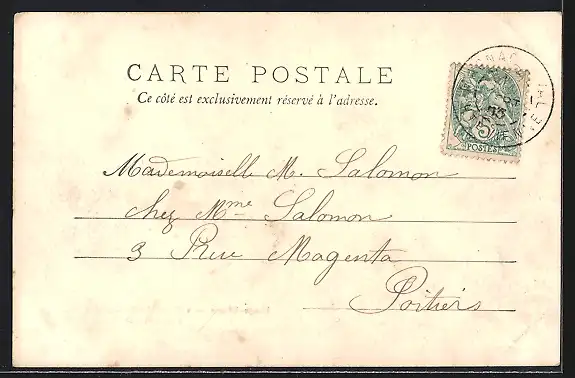 CARTE POSTALE
Ce côté est exclusivement réservé à l'adresse.
5
POSTES
Mademoiselle M. Salomon
chez Mme Salomon
3 Rue Magenta
Poitiers